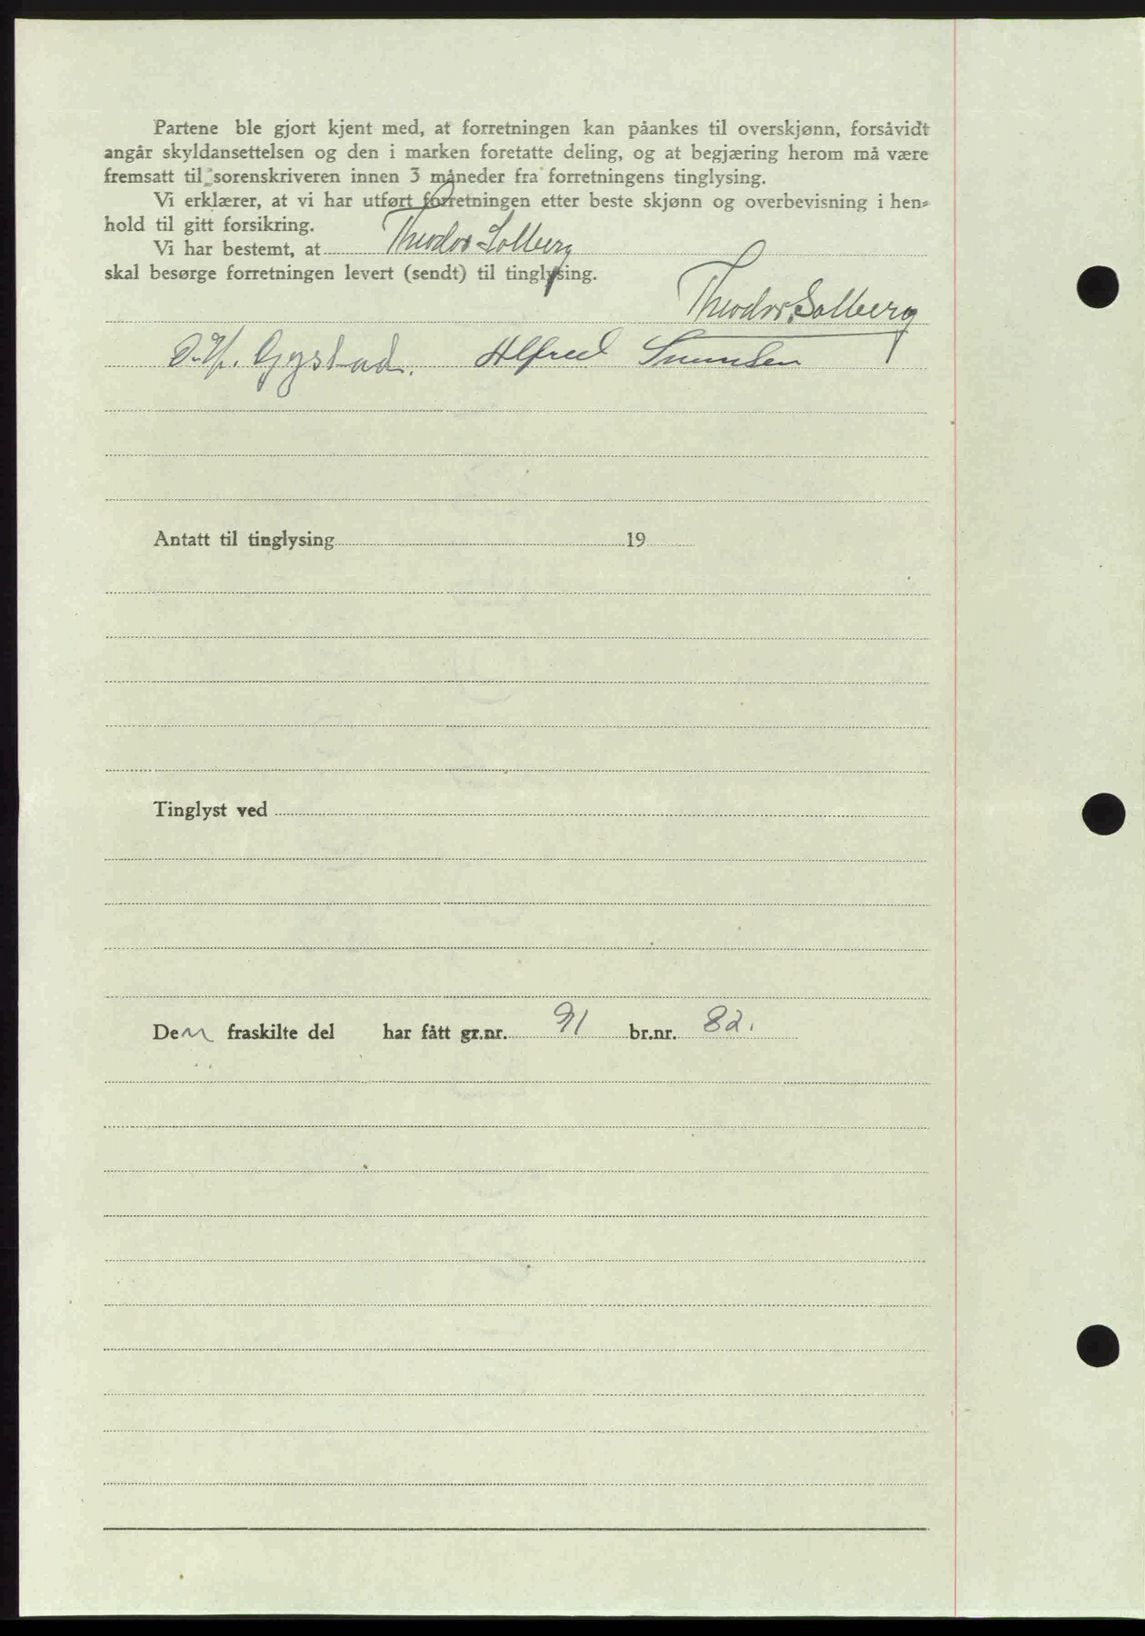 Partene ble gjort kjent med, at forretningen kan påankes til overskjønn, forsåvidt
angår skyldansettelsen og den i marken foretatte deling, og at begjæring herom må være
fremsatt til sorenskriveren innen 3 måneder fra forretningens tinglysing.
Vi erklærer, at vi har utført forretningen etter beste skjønn og overbevisning i hen-
hold til gitt forsikring.
Vi har bestemt, at Theodor Solberg
skal besørge forretningen levert (sendt) til tinglysing.
Theodor Solberg
Gystad. Alfred
Antatt til tinglysing 19
Tinglyst ved
Den fraskilte del har fått gr.nr. 91 br.nr. 82.